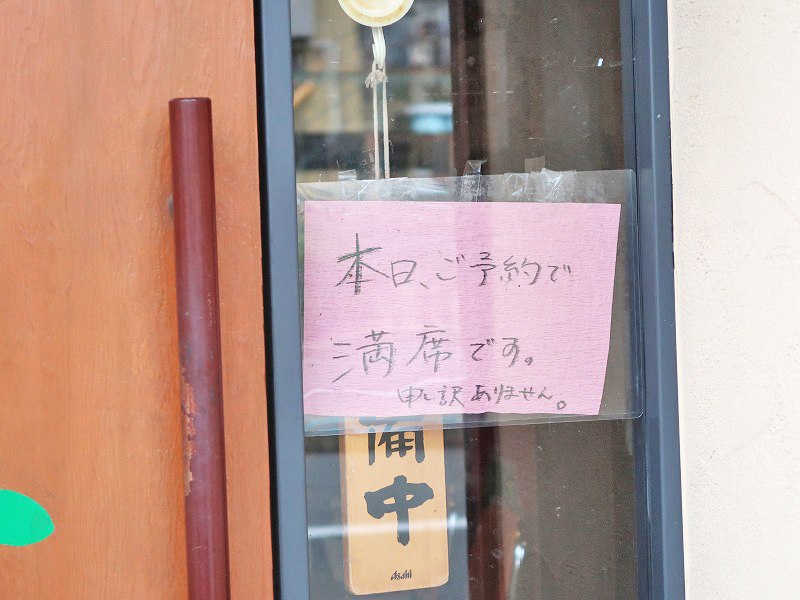 本日、ご予約で
満席です。
申し訳ありません。
備
中
Asahi